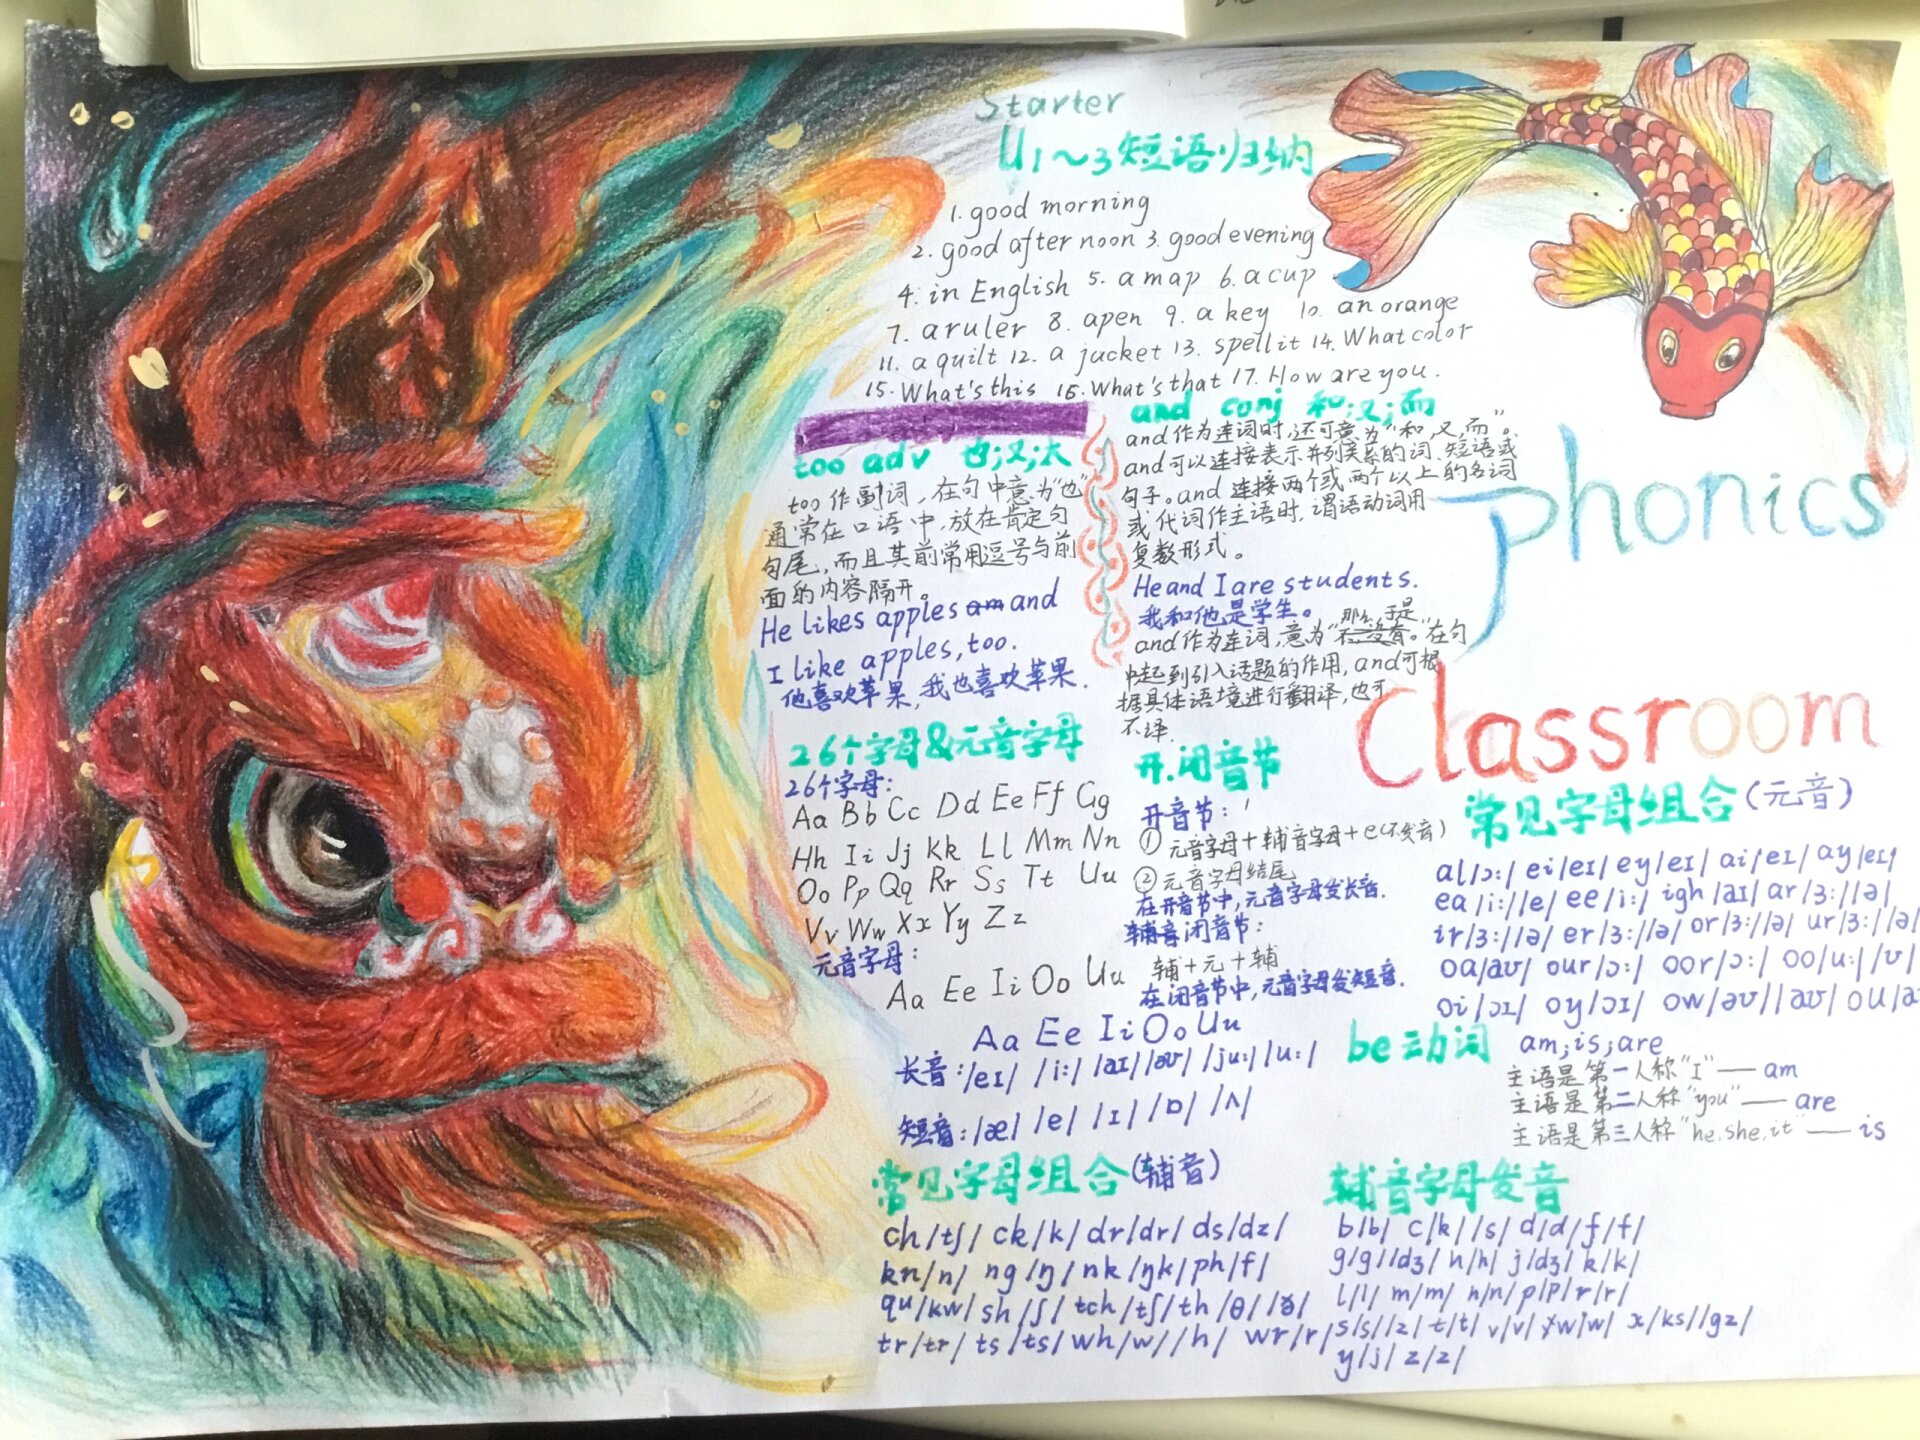 Starter
U1~3短语归纳
1. good morning
2. good after noon 3. good evening
4. in English 5. a map 6. a cup
7. a ruler 8. a pen 9. a key 10. an orange
11. a quilt 12. a jacket 13. spell it 14. What color
15. What's this 16. What's that 17. How are you.
too adv 也;又;太
too作副词，在句中意为"也"
通常在口语中，放在肯定句
句尾，而且其前常用逗号与前
面的内容隔开。
He likes apples am and
I like apples, too.
他喜欢苹果，我也喜欢苹果.
and conj 和;又;而
and作为连词时，还可意为"和,又,而"。
and可以连接表示并列关系的词、短语或
句子。and 连接两个或两个以上的名词
或代词作主语时，谓语动词用
复数形式。
He and I are students.
我和他是学生。
那么,于是
and作为连词，意为"不没有。"在句
中起到引入话题的作用，and可根
据具体语境进行翻译，也可
不译.
phonics
Classroom
26个字母&元音字母
26个字母:
Aa Bb Cc Dd Ee Ff Gg
Hh Ii Jj Kk Ll Mm Nn
Oo Pp Qq Rr Ss Tt Uu
Vv Ww Xx Yy Zz
元音字母:
Aa Ee Ii Oo Uu
开.闭音节
开音节:
① 元音字母+辅音字母+e(不发音)
② 元音字母结尾
在开音节中，元音字母发长音.
辅音闭音节:
辅+元+辅
在闭音节中，元音字母发短音.
Aa Ee Ii Oo Uu
长音:/eɪ/ /i:/ /aɪ/ /əʊ/ /ju:/ /u:/
短音:/æ/ /e/ /ɪ/ /ɒ/ /ʌ/
常见字母组合(元音)
al/ɔ:/ ei/eɪ/ ey/eɪ/ ai/eɪ/ ay/eɪ/
ea/i:/ /e/ ee/i:/ igh/aɪ/ ar/ɜ:/ /ə/
ir/ɜ:/ /ə/ er/ɜ:/ /ə/ or/ɜ:/ /ə/ ur/ɜ:/ /ə/
oa/əʊ/ our/ɔ:/ oor/ɔ:/ oo/u:/ /ʊ/
oi/ɔɪ/ oy/ɔɪ/ ow/əʊ/ /aʊ/ ou/a
be动词 am;is;are
主语是第一人称"I"——am
主语是第二人称"you"——are
主语是第三人称"he.she.it"——is
常见字母组合(辅音)
ch/tʃ/ ck/k/ dr/dr/ ds/dz/
kn/n/ ng/ŋ/ nk/ŋk/ ph/f/
qu/kw/ sh/ʃ/ tch/tʃ/ th/θ/ /ð/
tr/tr/ ts/ts/ wh/w/ /h/ wr/r/
辅音字母发音
b/b/ c/k/ /s/ d/d/ f/f/
g/g/ /dʒ/ h/h/ j/dʒ/ k/k/
l/l/ m/m/ n/n/ p/p/ r/r/
s/s/ /z/ t/t/ v/v/ w/w/ x/ks/ /gz/
y/j/ z/z/